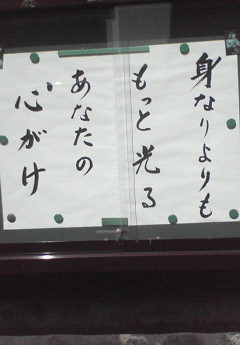 身なりよりも
もっと光る
あなたの
心がけ